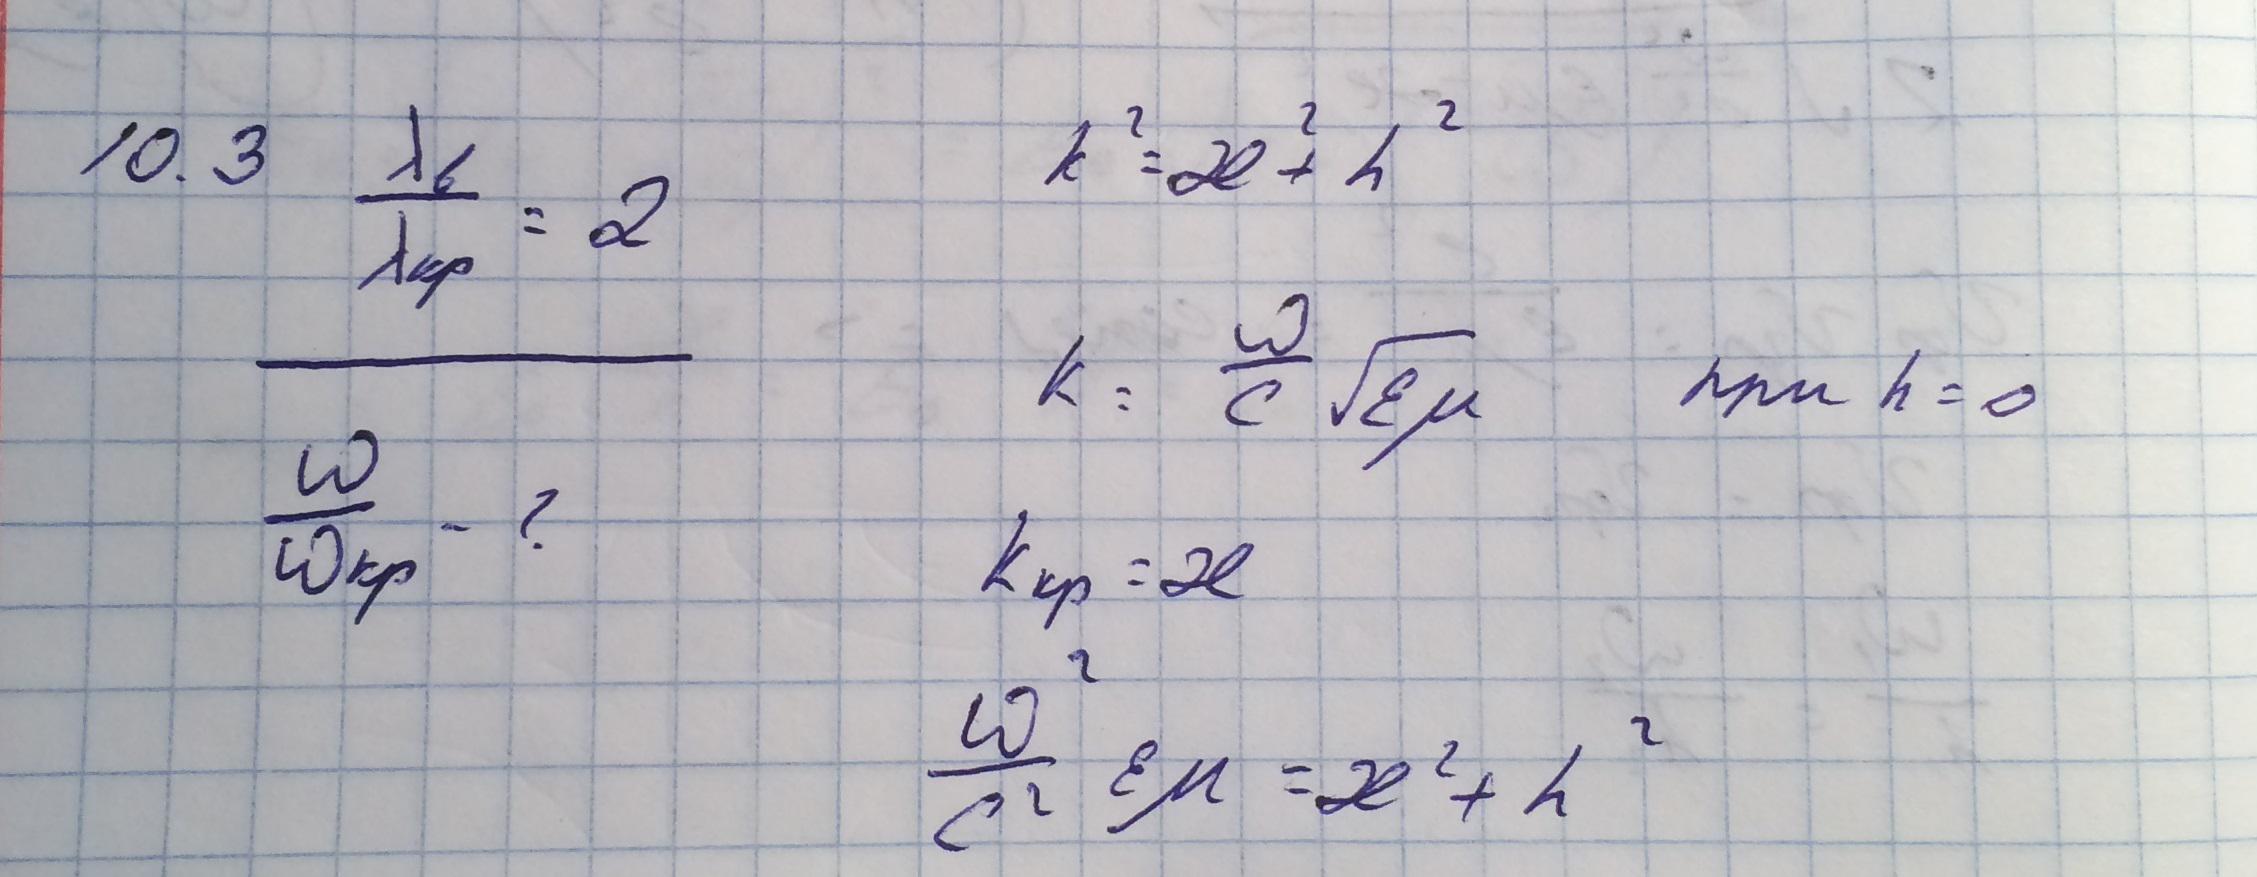 10.3 λв/λкр = 2
ω/ωкр - ?
k² = æ² + h²
k = ω/c √εμ при h = 0
kкр = æ
ω²/c² εμ = æ² + h²